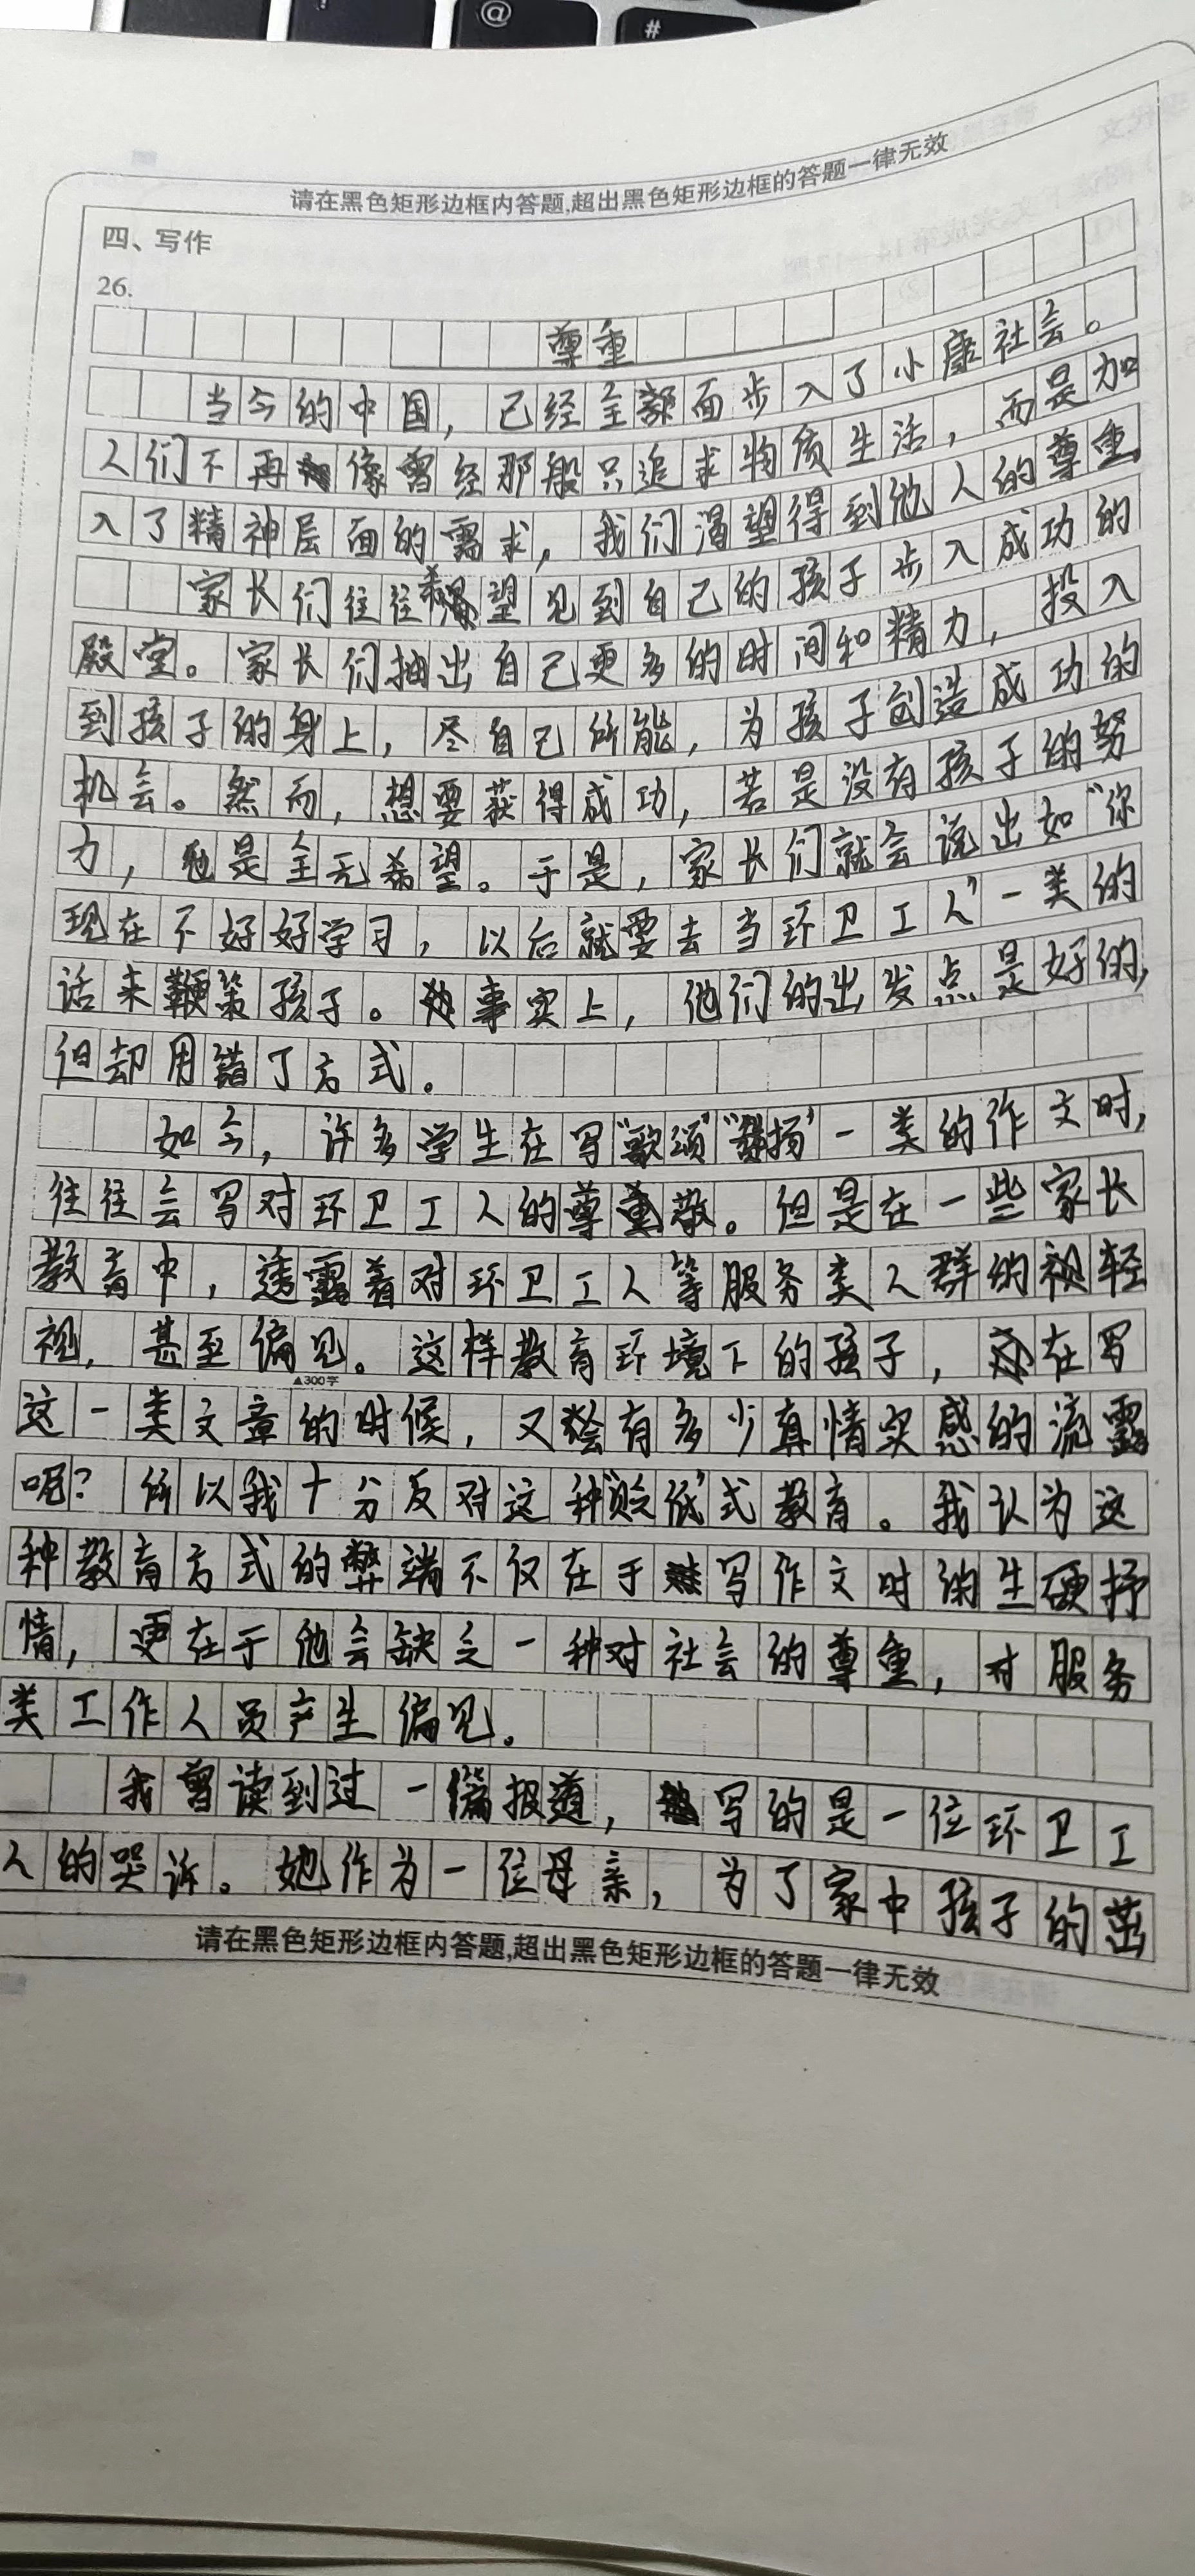 @
#
请在黑色矩形边框内答题,超出黑色矩形边框的答题一律无效
四、写作
26.
尊重
当今的中国，已经全面步入了小康社会。
人们不再像曾经那般只追求物质生活，而是加
入了精神层面的需求，我们渴望得到他人的尊重
家长们往往希望见到自己的孩子步入成功的
殿堂。家长们抽出自己更多的时间和精力，投入
到孩子的身上，尽自己所能，为孩子创造成功的
机会。然而，想要获得成功，若是没有孩子的努
力，也是全无希望。于是，家长们就会说出如“你
现在不好好学习，以后就要去当环卫工人”一类的
话来鞭策孩子。事实上，他们的出发点是好的，
但却用错了方式。
如今，许多学生在写“歌颂”“赞扬”一类的作文时，
往往会写对环卫工人的尊敬。但是在一些家长
教育中，透露着对环卫工人等服务类人群的轻
视，甚至偏见。这样教育环境下的孩子，在写
▲300字
这一类文章的时候，又会有多少真情实感的流露
呢？所以我十分反对这种“贬低”式教育。我认为这
种教育方式的弊端不仅在于写作文时的生硬抒
情，更在于他会缺乏一种对社会的尊重，对服务
类工作人员产生偏见。
我曾读到过一篇报道，写的是一位环卫工
人的哭诉。她作为一位母亲，为了家中孩子的茁
请在黑色矩形边框内答题,超出黑色矩形边框的答题一律无效